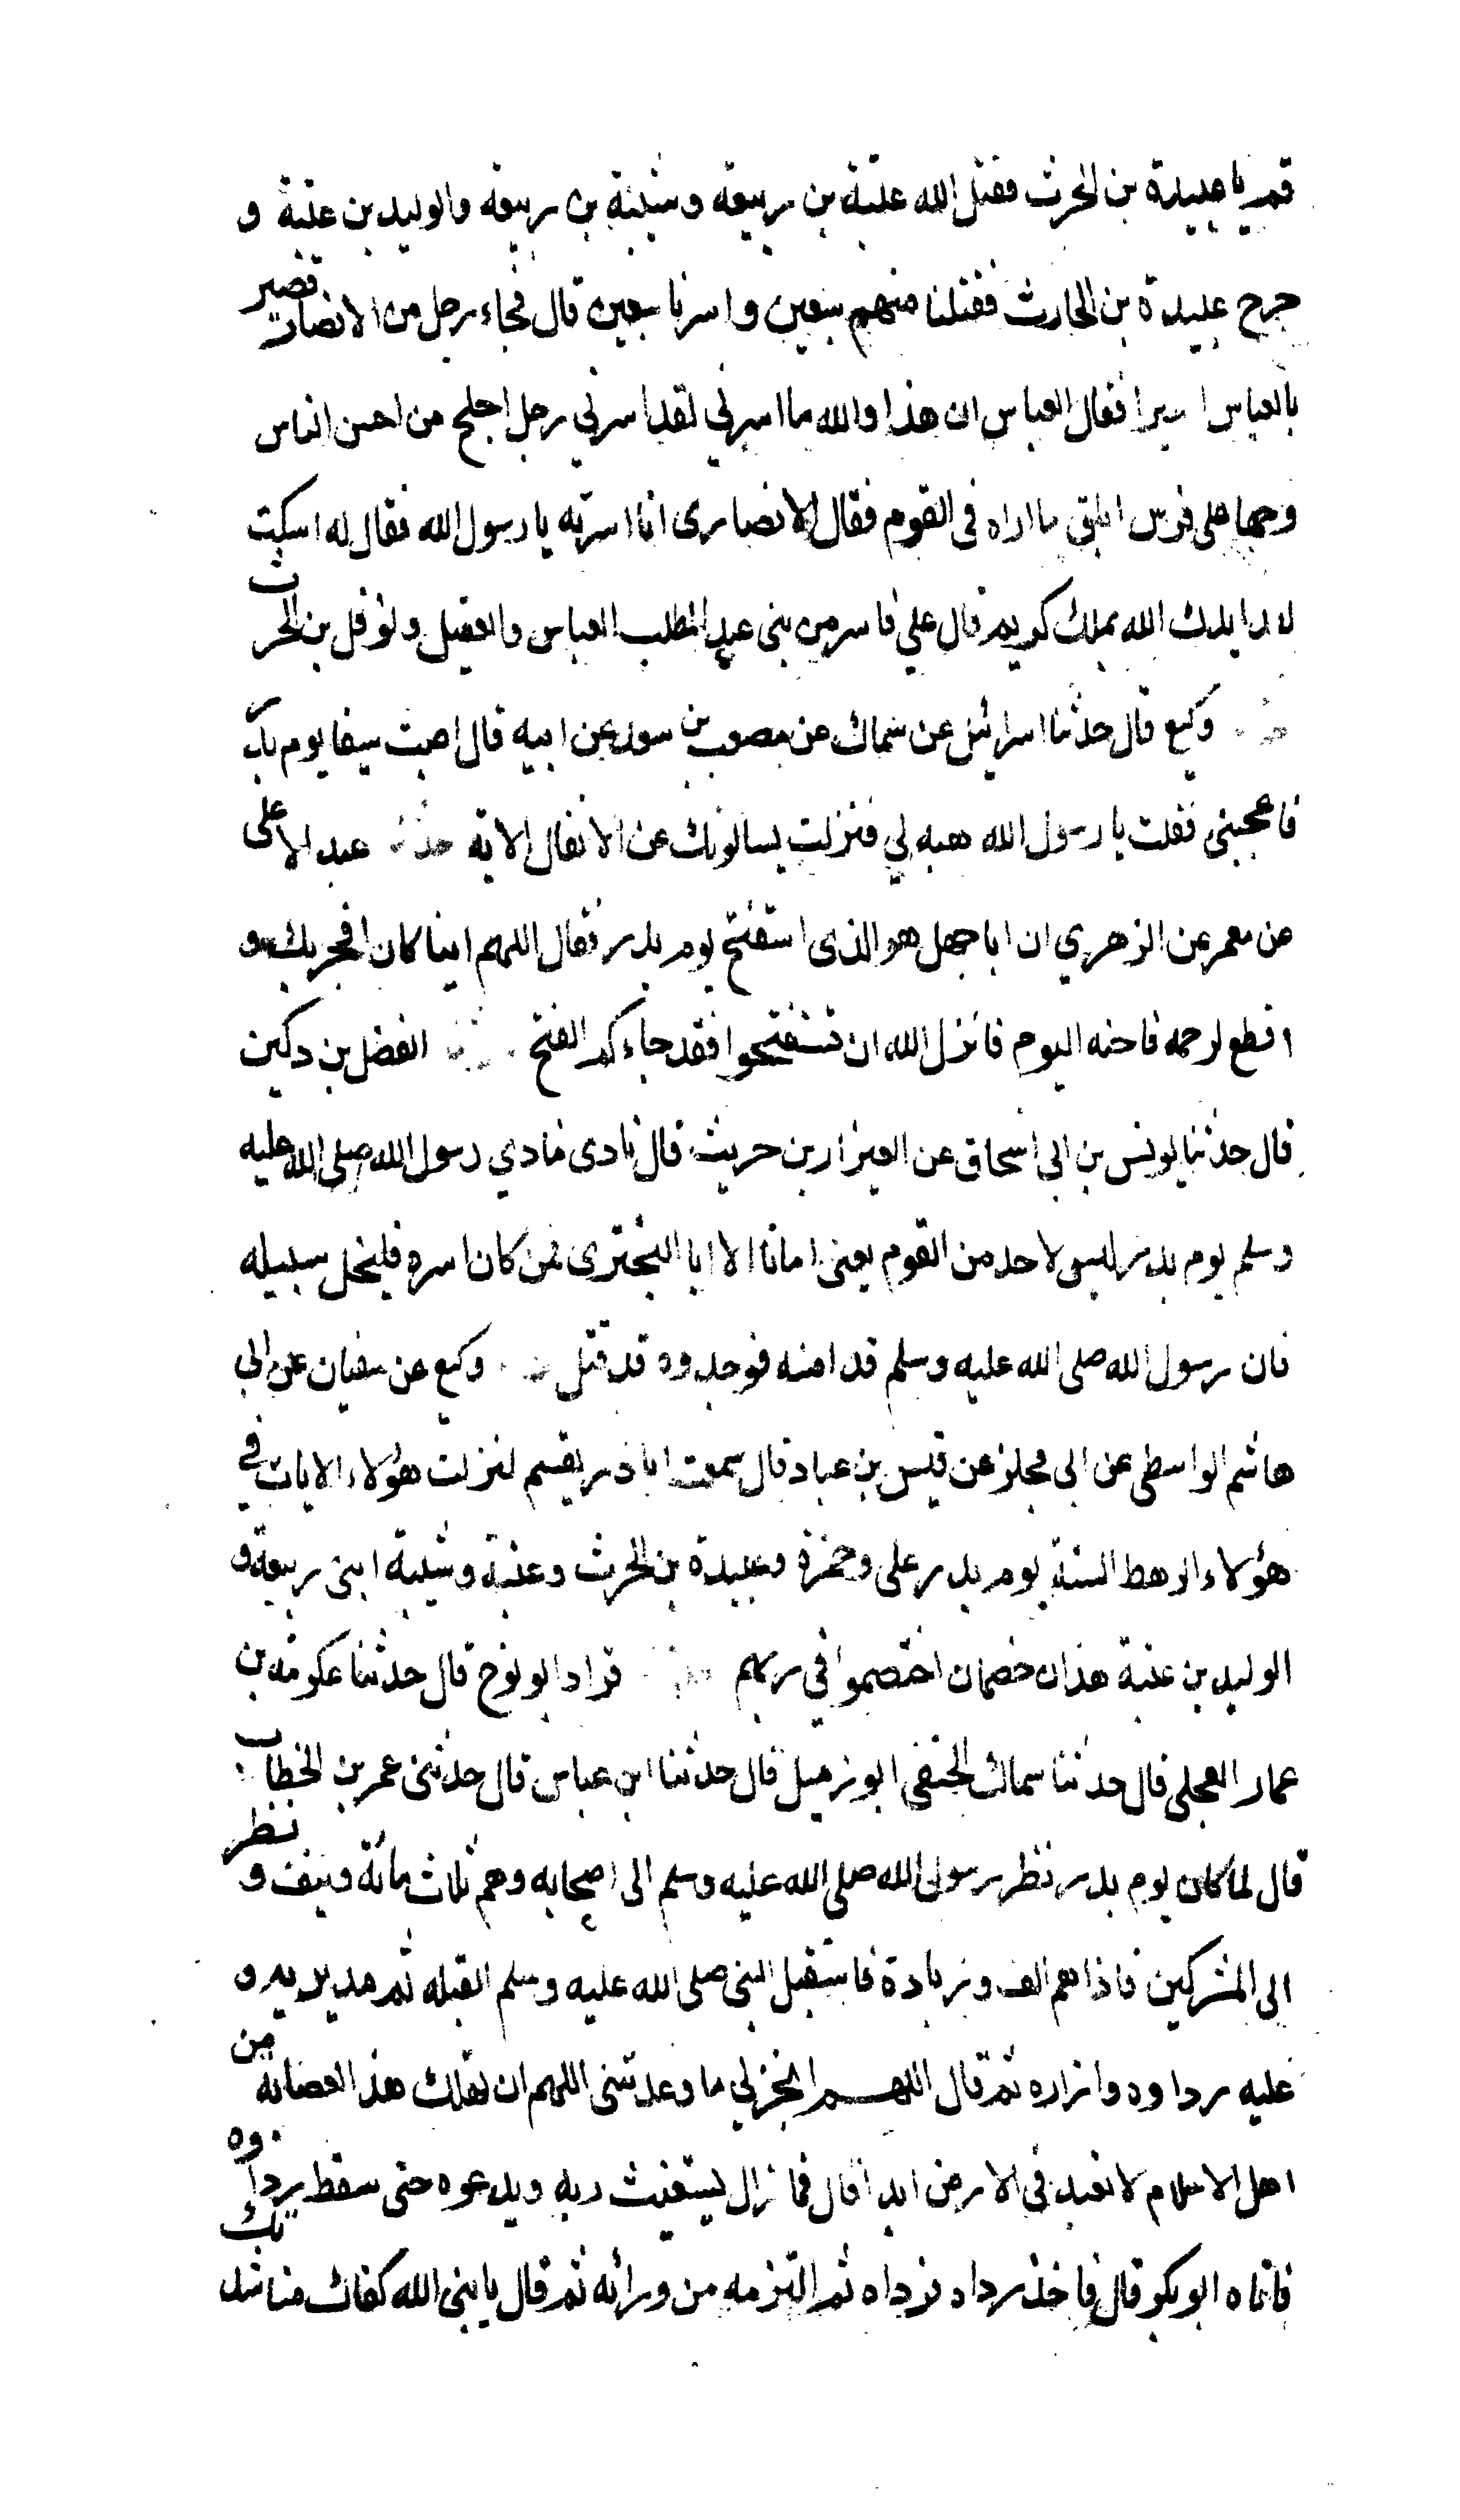 قم يا عبيدة بن الحرث فقتل الله عتبة بن ربيعه وشيبة بن ربيعه والوليد بن عتبة و
جرح عبيدة بن الحارث فقتلنا منهم سبعين واسرنا سبعين قال فجاء رجل من الانصار قصير
بالعباس اسيرا فقال العباس ان هذا والله ما اسرني لقد اسرني رجل اجلح من احسن الناس
وجها على فرس ابلق ما اراه في القوم فقال الانصارى انا اسرته يا رسول الله فقال له اسكت
لقد ايدك الله بملك كريم قال علي فاسر من بنى عبد المطلب العباس والعقيل ونوفل بن الحرث
وكيع قال حدثنا اسرائيل عن سماك عن مصعب بن سعد عن ابيه قال اصبت سيفا يوم بدر
فاعجبنى فقلت يا رسول الله هبه لي فنزلت يسالونك عن الانفال الاية حدثنا عبد الاعلى
عن معمر عن الزهري ان ابا جهل هو الذى استفتح يوم بدر فقال اللهم اينا كان افجر بك و
اقطع لرحمه فاحنه اليوم فانزل الله ان تستفتحوا فقد جاءكم الفتح الفضل بن دكين
قال حدثنا يونس بن ابى اسحاق عن العيزار بن حريث قال نادى منادي رسول الله صلى الله عليه
وسلم يوم بدر ليس لاحد من القوم يعنى امانا الا ابا البخترى فمن كان اسره فليخل سبيله
فان رسول الله صلى الله عليه وسلم قد امنه فوجدوه قد قتل وكيع عن سفيان عن ابى
هاشم الواسطى عن ابى مجلز عن قيس بن عباد قال سمعت ابا ذر يقسم لنزلت هؤلاء الايات في
هؤلاء الرهط الستة يوم بدر على وحمزة وعبيدة بن الحرث وعتبة وشيبة ابنى ربيعة و
الوليد بن عتبة هذان خصمان اختصموا في ربهم قراد ابو نوح قال حدثنا عكرمه بن
عمار العجلى قال حدثنا سماك الحنفى ابو زميل قال حدثنا ابن عباس قال حدثنى عمر بن الخطاب
قال لما كان يوم بدر نظر رسول الله صلى الله عليه وسلم الى اصحابه وهم ثلاث مائة ونيف و نظر
الى المشركين فاذا هم الف وزيادة فاستقبل النبى صلى الله عليه وسلم القبله ثم مد يديه و
عليه رداوه وازاره ثم قال اللهم انجز لي ما وعدتنى اللهم ان تهلك هذ العصابة من
اهل الاسلام لا تعبد في الارض ابدا قال فما زال يستغيث ربه ويدعوه حتى سقط رداوه
فاتاه ابو بكر قال فاخذ رداه فرداه ثم التزمه من ورائه ثم قال يا نبى الله كفاك مناشدتك